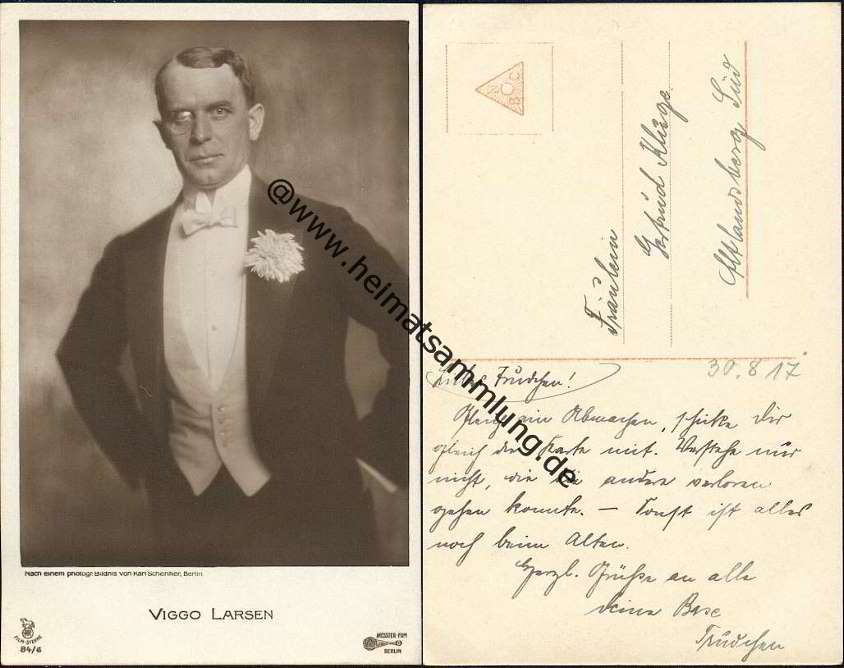 Nach einem photogr. Bildnis von Karl Schenker, Berlin.
VIGGO LARSEN
FILM-STERNE
84/6
MESSTER-FILM
BERLIN
@www.heimatsammlung.de
N
B O C
Fräulein
Gertrud Kluge
Altlandsberg Süd
30.8 17
Liebe Trudchen!
ein Abmachen, schicke Dir
gleich die Karte mit. Verstehe nur
nicht, wie die andere verloren
gehen konnte. – Sonst ist alles
noch beim Alten.
Herzl. Grüße an alle
Deine Base
Trudchen